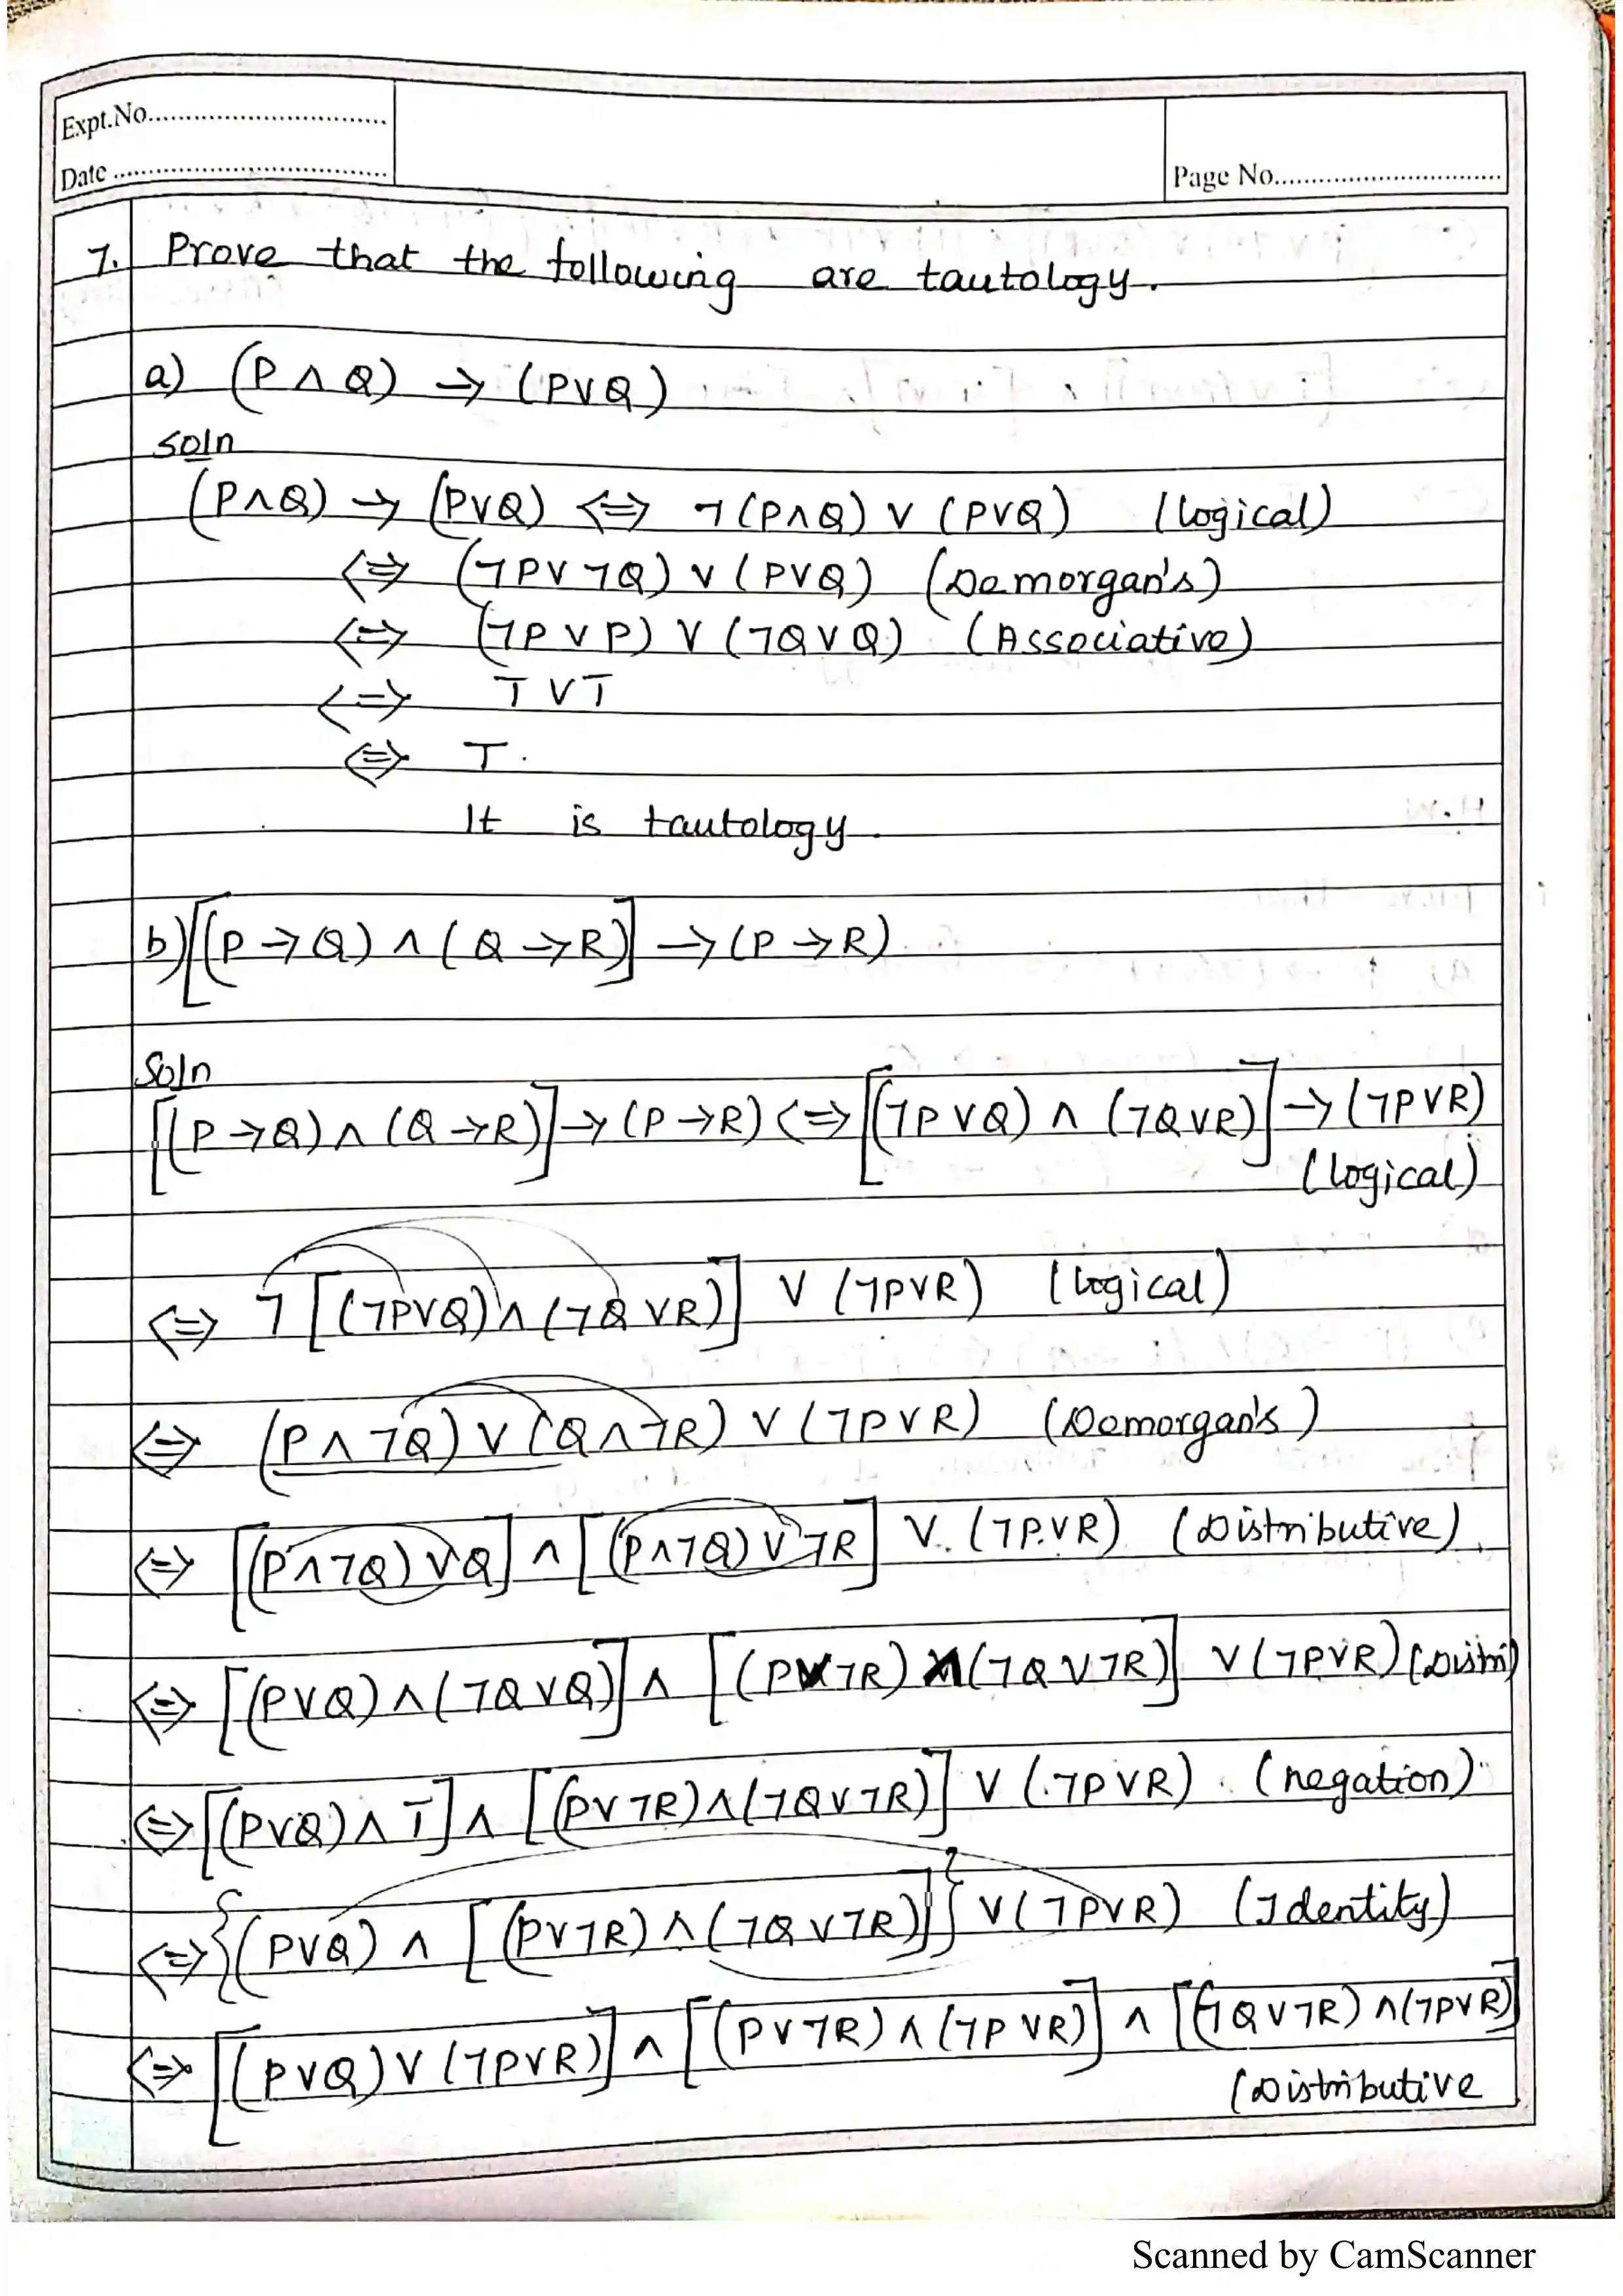 Expt.No..............................
Date ...................................
Page No.............................
7. Prove that the following are tautology.
a) (P ∧ Q) → (P∨Q)
soln
(P∧Q) → (P∨Q) <=> ¬(P∧Q) ∨ (P∨Q) (logical)
<=> (¬P∨¬Q) ∨ (P∨Q) (Demorgan's)
<=> (¬P ∨ P) ∨ (¬Q∨Q) (Associative)
<=> T ∨ T
<=> T.
It is tautology.
b) [(P → Q) ∧ (Q → R)] → (P → R)
Soln
[(P → Q) ∧ (Q → R)] → (P → R) <=> [(¬P ∨ Q) ∧ (¬Q∨R)] → (¬P∨R)
(logical)
<=> ¬ [(¬P∨Q) ∧ (¬Q ∨R)] ∨ (¬P∨R) (logical)
<=> (P ∧ ¬Q) ∨ (Q ∧ ¬R) ∨ (¬P∨R) (Demorgan's)
<=> [(P∧¬Q) ∨ Q] ∧ [(P∧¬Q) ∨ ¬R] ∨ (¬P∨R) (Distributive)
<=> [(P∨Q) ∧ (¬Q∨Q)] ∧ [(P∨¬R) ∧ (¬Q∨¬R)] ∨ (¬P∨R) (Distri)
<=> [(P∨Q) ∧ T] ∧ [(P∨¬R) ∧ (¬Q∨¬R)] ∨ (¬P∨R) (negation)
<=> {(P∨Q) ∧ [(P∨¬R) ∧ (¬Q∨¬R)]} ∨ (¬P∨R) (Identity)
<=> [(P∨Q) ∨ (¬P∨R)] ∧ [(P∨¬R) ∧ (¬P∨R)] ∧ [(¬Q∨¬R) ∧ (¬P∨R)]
(Distributive
Scanned by CamScanner